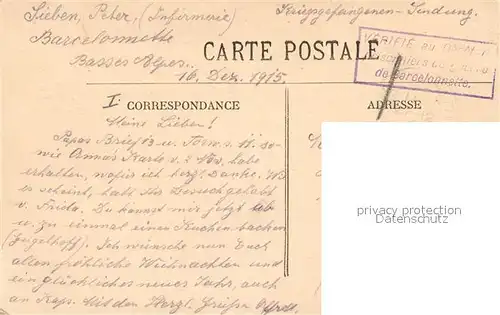 Sieben, Peter, (Infirmerie)
Kriegsgefangenen-Sendung.
Barcelonnette
Basses Alpes.
CARTE POSTALE
16. Dez. 1915
VÉRIFIÉ au
de Barcelonnette.
I
CORRESPONDANCE
ADRESSE
Meine Lieben!
Papas Brief u. so-
wie Annas Karte v. 2 Nov. habe
erhalten, wofür ich herzl. Danke. Wie
es scheint, habt Ihr Besuch gehabt
v. Frida. Du kannst mir jetzt
u. zu einmal einen Kuchen backen
Ich wünsche nun Euch
allen fröhliche Weihnachten und
ein glückliches neues Jahr, auch
an Mit den Herzl. Grüßen
privacy protection
Datenschutz